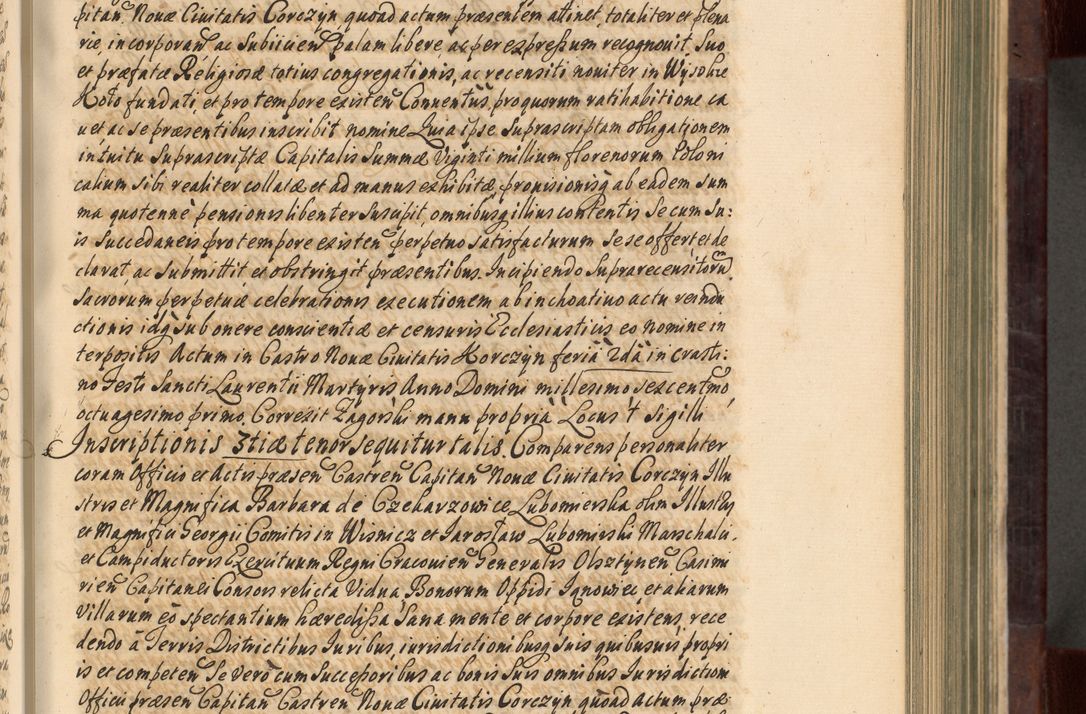 pitan̄ Novæ Civitatis Corczyn quoad actum præsentem attinet, totaliter et plena
rie, incorporan̄ ac subiicien̄ palam libere ac per expressum recognovit Suo
et præfatæ Religiosæ totius congregationis, ac recensiti noviter in Wysokie
Koło fundati, et pro tempore existen̄ Conventus, pro quorum ratihabitione ca
vet ac se præsentibus inscribit nomine Quia ipse suprascriptam obligationem
intuitu suprascriptæ Capitalis Summæ Viginti millium florenorum Poloni
calium sibi realiter collatæ et ad manus exhibitæ, provisionisq̃ ab eadem sum
ma quotennè pensionis libenter suscipit, omnibusq̃ illius contentis se cum su:
is succedaneis pro tempore existen̄ perpetuo satisfacturum sese offert et de
clarat, ac submittit et obstringit præsentibus. Incipiendo suprarecensitorū
sacrorum perpetuæ celebrationis executionem ab inchoativo actu reindu
ctionis idq̃ sub onere conscientiæ et censuris Ecclesiasticis eo nomine in
terpositis Actum in Castro Novæ Civitatis Korczyn feriâ 2dâ in crasti:
no Festi Sancti Laurentii Martyris Anno Domini millesimo sexcentmō
octuagesimo primo. Correxit Zagorski manu propriâ Locus † Sigilli
Inscriptionis 3tiæ tenor sequitur talis. Comparens personaliter
coram Officio et Actis præsen̄ Castren̄ Capitan̄ Novæ Civitatis Corczyn Illu
stris et Magnifica Barbara de Czekarzowice Lubomierska olim Illustris
et Magnifici Georgii Comitis in Wisnicz et Jarosław Lubomirski Marschalci
et Campiductoris Exercituum Regni Cracovien̄ Generalis Olsztynen̄ Casimi
rien̄ Capitanei Consors relicta Vidua, Bonorum Oppidi Janowiec, et aliarum
Villarum eò spectantium hæredissa, Sana mente et corpore existens, rece
dendo â Terris Districtibus Juribus, iurisdictionibusq̃ suis quibusvis propri
is et competen̄ Se verò cum successoribus ac bonis suis omnibus Jurisdictioni
Officii præsen̄ Capitan̄ Castren̄ Novæ Civitatis Corczyn quoad actum præ